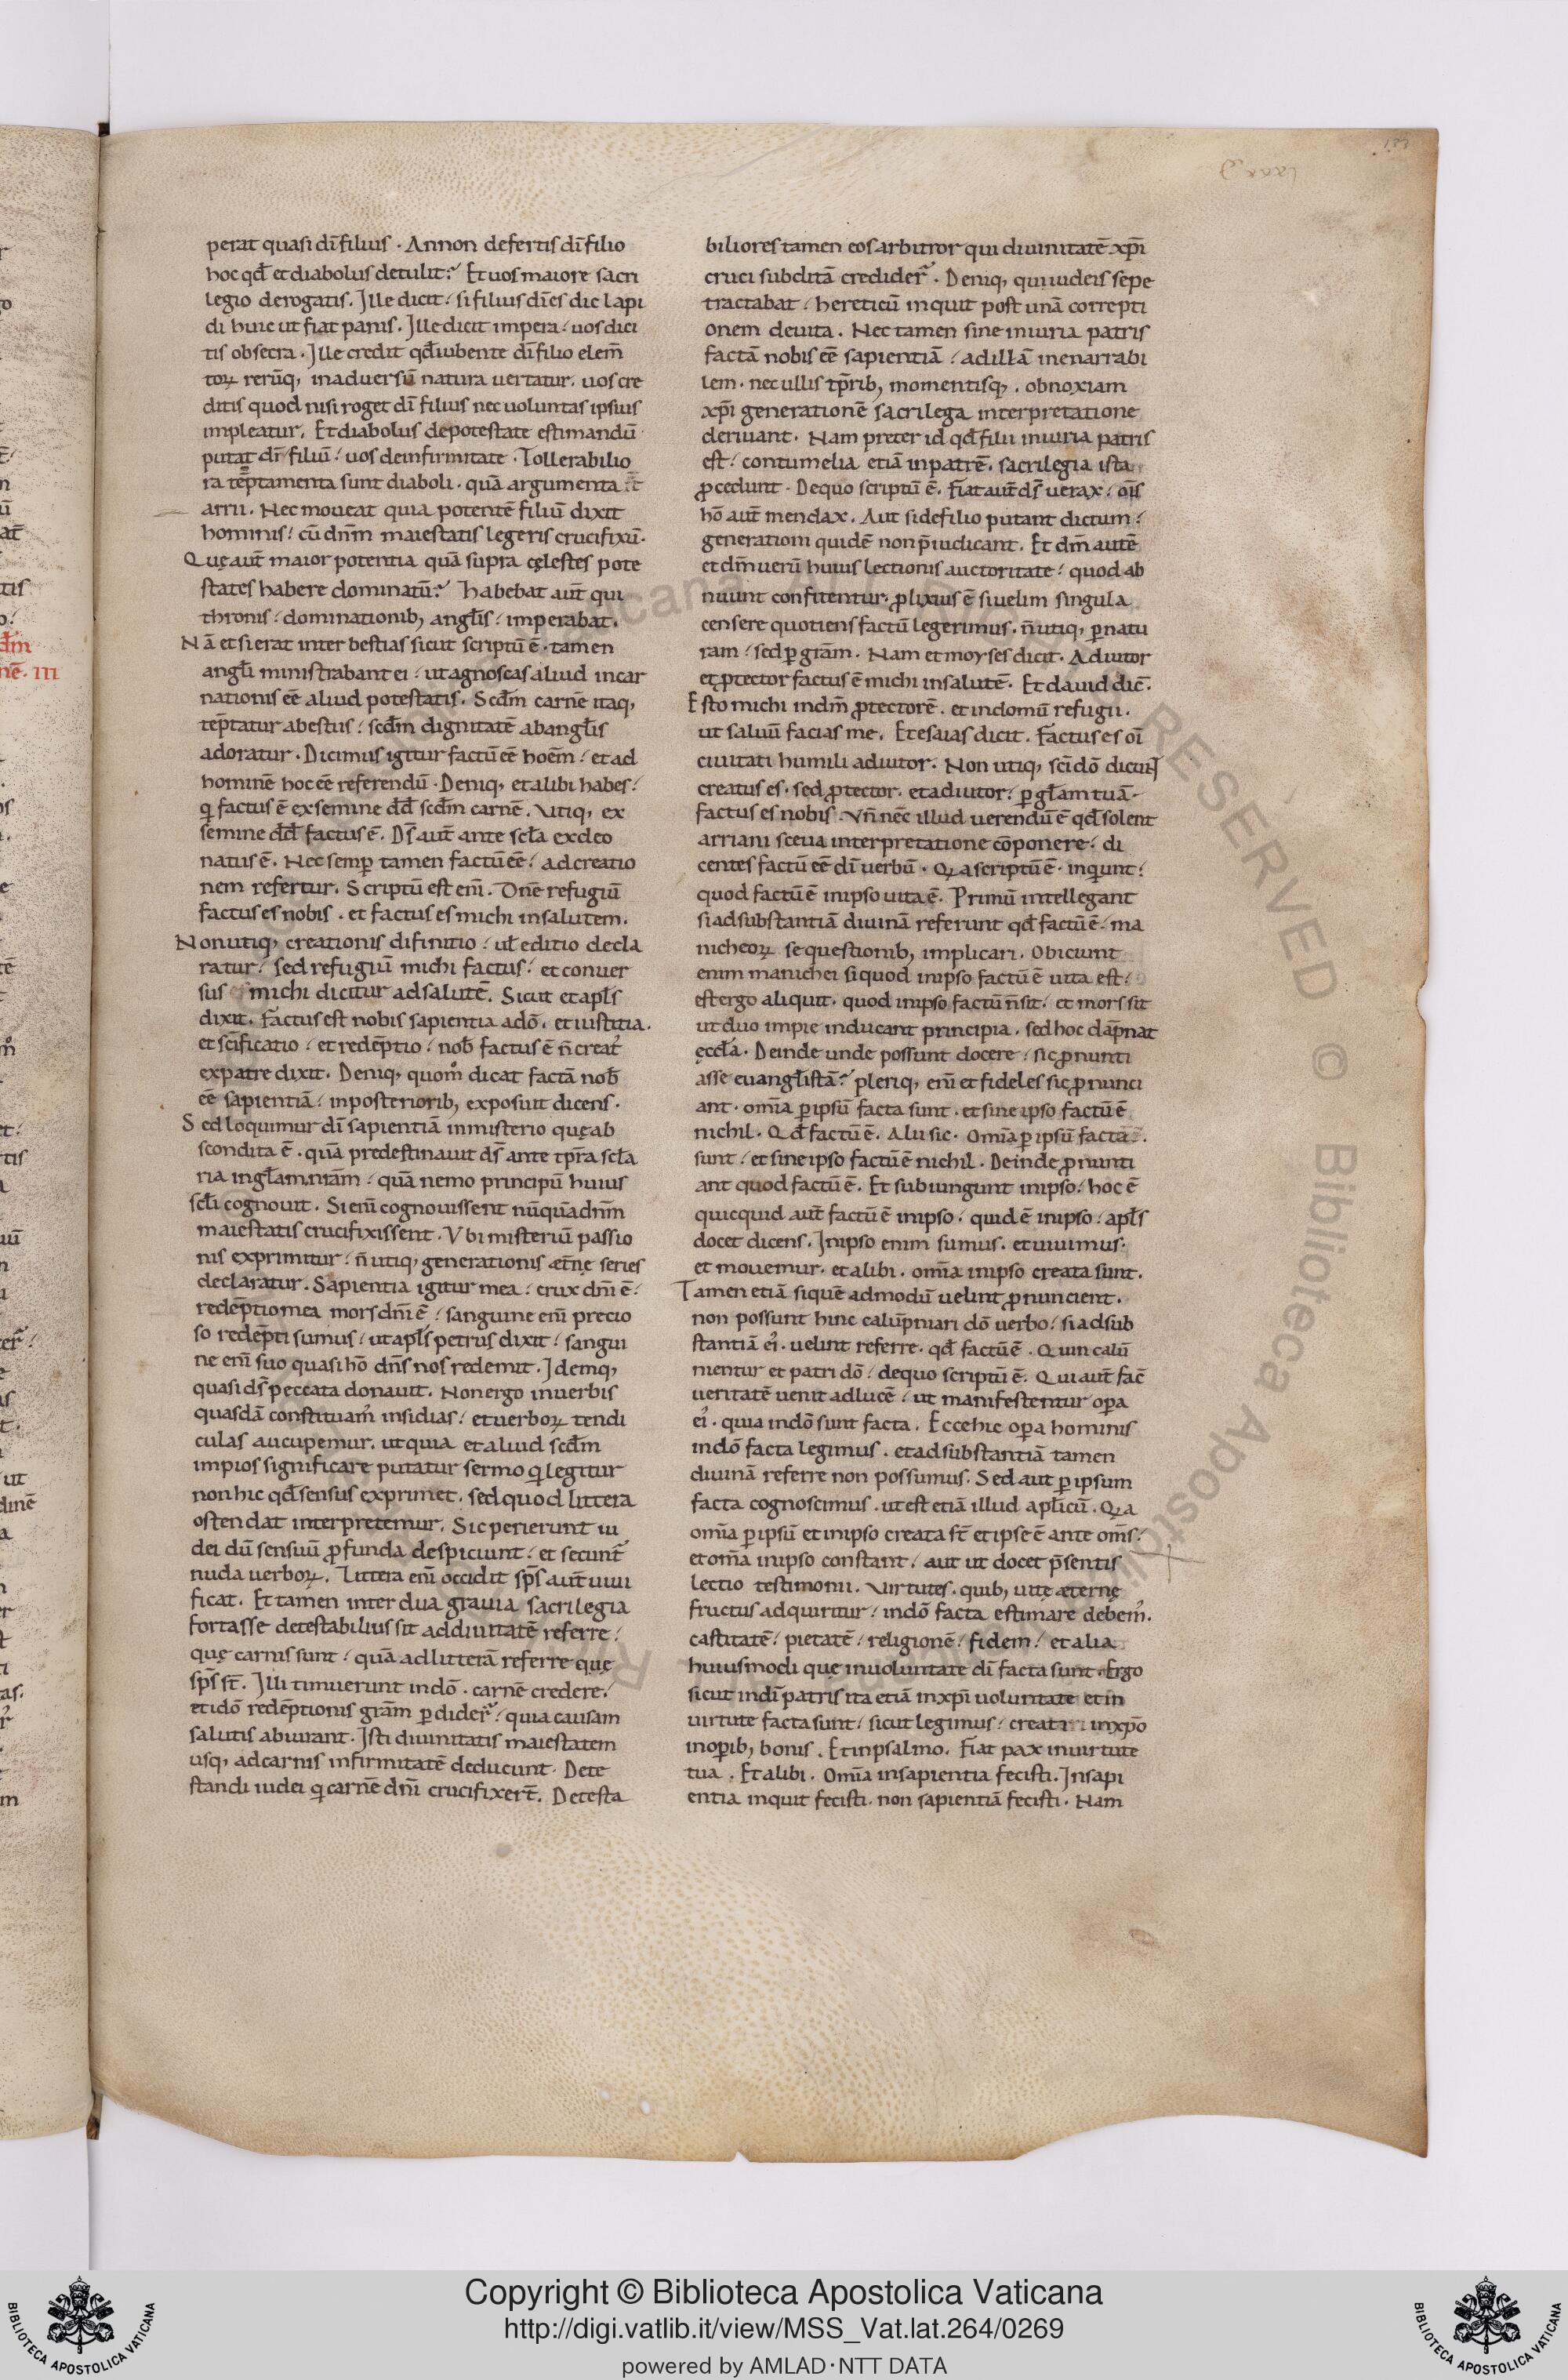 perat quasi dī filius · Annon defertis dī filio
hoc qđ et diabolus detulit? Et uos maiore sacri
legio derogatis. Ille dicit: si filius dī es dic lapi
di huic ut fiat panis. Ille dicit impera: uos dici
tis obsecra. Ille credit qđ iubente dī filio elem̄
toꝝ rerūq, in aduersū natura uertatur. uos cre
ditis quod nisi roget dī filius nec uoluntas ipsius
impleatur. Et diabolus de potestate estimandū
putat dī filiū: uos de infirmitate. Tollerabilio
ra tēptamenta sunt diaboli · quā argumenta
arrii. Nec moueat quia potentē filiū dixit
hominis: cū dn̄m maiestatis legeris crucifixū.
Quę aut̄ maior potentia quā supra cęlestes pote
states habere dominatū? Habebat aut̄ qui
thronis: dominationib, angłis: imperabat.
Nā et si erat inter bestias sicut scriptū ē · tamen
angłi ministrabant ei: ut agnoscas aliud incar
nationis eē aliud potestatis. Scđm carnē itaq,
tēptatur a bestiis: scđm dignitatē ab angłis
adoratur. Dicimus igitur factū eē hoēm: et ad
hominē hoc eē referendū. Deniq, et alibi habes:
qi factus ē ex semine dđ scđm carnē. Utiq, ex
semine dđ factus ē. Ds̄ aut̄ ante scła ex deo
natus ē. Nec semꝑ tamen factū eē: ad creatio
nem refertur. Scriptū est eni̅. Dn̄e refugiū
factus es nobis · et factus es michi in salutem.
Non utiq, creationis difinitio: uł editio decla
ratur: sed refugiū michi factus: et conuer
sus michi dicitur ad salutē. Sicut et apłs
dixit. Factus est nobis sapientia a dō. et iustitia.
et sc̄ificatio: et redēptio: nob̄ factus ē n̄ creat᷒
ex patre dixit. Deniq, quom̊ dicat factā nob̄
eē sapientiā: in posteriorib, exposuit dicens.
Sed loquimur dī sapientiā in misterio quę ab
scondita ē · quā predestinauit ds̄ ante tp̄ra scła
ria in głam nr̄am: quā nemo principū huius
scłi cognouit. Si eni̅ cognouissent nūquā dn̄m
maiestatis crucifixissent. Ubi misteriū passio
nis exprimitur: n̄ utiq, generationis æt̄nę series
declaratur. Sapientia igitur mea: crux dn̄i ē:
redēptio mea mors dn̄i ē: sanguine eni̅ precio
so redēpti sumus: ut apłs petrus dixit: sangui
ne eni̅ suo quasi hō dn̄s nos redemit. Idemq,
quasi ds̄ peccata donauit. Non ergo in uerbis
quasdā constituam᷒ insidias: et uerboꝝ tendi
culas aucupemur. ut quia et aliud scđm
impios significare putatur sermo qi legitur
non hic qđ sensus exprimet. sed quod littera
ostendat interpretemur. Sic perierunt iu
dei dū sensuū ꝓfunda despiciunt: et secunt᷑
nuda uerboꝝ. Littera eni̅ occidit sp̄s aut̄ uiui
ficat. Et tamen inter dua grauia sacrilegia
fortasse detestabilius sit ad diuitatē referre:
quę carnis sunt: quā ad litterā referre quę
sp̄s st̄. Illi timuerunt in dō · carnē credere:
et idō redēptionis gr̄am ꝑdider᷑: quia causam
salutis abiurant. Isti diuinitatis maiestatem
usq, ad carnis infirmitatē deducunt. Dete
standi iudei qi carnē dn̄i crucifixert̄. Detesta
biliores tamen eos arbitror qui diuinitatē xp̄i
cruci subditā credider᷑. Deniq, qui iudeis sepe
tractabat: hereticū inquit post unā correpti
onem deuita. Nec tamen sine iniuria patris
factā nobis eē sapientiā: ad illā inenarrabi
lem · nec ullis tp̄rib, momentisq, · obnoxiam
xp̄i generationē sacrilega interpretatione
deriuant. Nam pręter id qđ filii iniuria patris
est: contumelia etiā in patrē. sacrilegia ista
ꝓcedunt. De quo scriptū ē. Fiat aut̄ ds̄ uerax: oi̅s
hō aut̄ mendax. Aut si de filio putant dictum:
generationi quidē non p̄iudicant. Et dm̄ autē
et dm̄ uerū huius lectionis auctoritate: quod ab
nuunt confitentur. ꝓlixius ē si uelim singula
censere quotiens factū legerimus. n̄ utiq, ꝑ natu
ram: sed ꝑ gr̄am. Nam et moyses dicit. Adiutor
et ꝓtector factus ē michi in salutē. Et dauid dic̄.
Esto michi in dm̄ ꝓtectorē. et in domū refugii.
ut saluū facias me. Et esaias dicit. Factus es oi̅
ciuitati humili adiutor. Non utiq, sc̄i dō dicūt
creatus es. sed ꝓtector. et adiutor: ꝑ głam tuā.
factus es nobis. Un̄ nec̄ illud uerendū ē qđ solent
arriani sceua interpretatione cōponere: di
centes factū eē dī uerbū. Qꝛ a scriptū ē · inqiunt:
quod factū ē in ipso uita ē. Primū intellegant
si ad substantiā diuinā referunt qđ factū ē: ma
nicheoꝝ se questionib, implicari. Obiciunt
enim manichei si quod in ipso factū ē uita est:
est ergo aliquit. quod in ipso factū n̄ sit. et mors sit
ut duo impie inducant principia. sed hoc dāpnat
ęccłā. Deinde unde possunt docere: sic ꝓnunti
asse euangłistā? pleriq, eni̅ et fideles sic ꝓnunci
ant. om̄ia ꝑ ipsū facta sunt. et sine ipso factū ē
nichil. Qđ factū ē. Alii sic. Om̄ia ꝑ ipsū facta
sunt: et sine ipso factū ē nichil. Deinde ꝓnunti
ant quod factū ē. Et subiungunt in ipso: hoc ē
quicquid aut̄ factū ē in ipso. quid ē in ipso: apłs
docet dicens. In ipso enim sumus. et uiuimus.
et mouemur. et alibi. om̄ia in ipso creata sunt.
Tamen etiā si quē admodū uelint ꝓnuncient.
non possunt hinc calūpniari dō uerbo: si ad sub
stantiā ei᷒. uelint referre. qđ factū ē. Quin calū
nientur et patri dō: de quo scriptū ē. Qui aut̄ fac̄
ueritatē uenit ad lucē: ut manifestentur oꝑa
ei᷒. quia in dō sunt facta. Ecce hic oꝑa hominis
in dō facta legimus. et ad substantiā tamen
diuinā referre non possumus. Sed aut ꝑ ipsum
facta cognoscimus. ut est etiā illud apłicū. Qꝛ a
om̄ia ꝑ ipsū et in ipso creata st̄ et ipse ē ante om̄s:
et om̄a in ipso constant. aut ut docet p̄sentis
lectio testimonii. Uirtutes. quib, uitę æternę
fructus adquiritur: in dō facta estimare debem᷒.
castitatē: pietatē: religionē: fidem: et alia
huiusmodi quę in uoluntate dī facta sunt. Ergo
sicut in dī patris ita etiā in xp̄i uoluntate et in
uirtute facta sunt: sicut legimus: creati in xp̄o
in oꝑib, bonis. Et in psalmo. Fiat pax in uirtute
tua. Et alibi. Om̄ia in sapientia fecisti. In sapi
entia inquit fecisti. non sapientiā fecisti. Nam
Copyright © Biblioteca Apostolica Vaticana
http://digi.vatlib.it/view/MSS_Vat.lat.264/0269
powered by AMLAD·NTT DATA
BIBLIOTECA APOSTOLICA VATICANA
BIBLIOTECA APOSTOLICA VATICANA